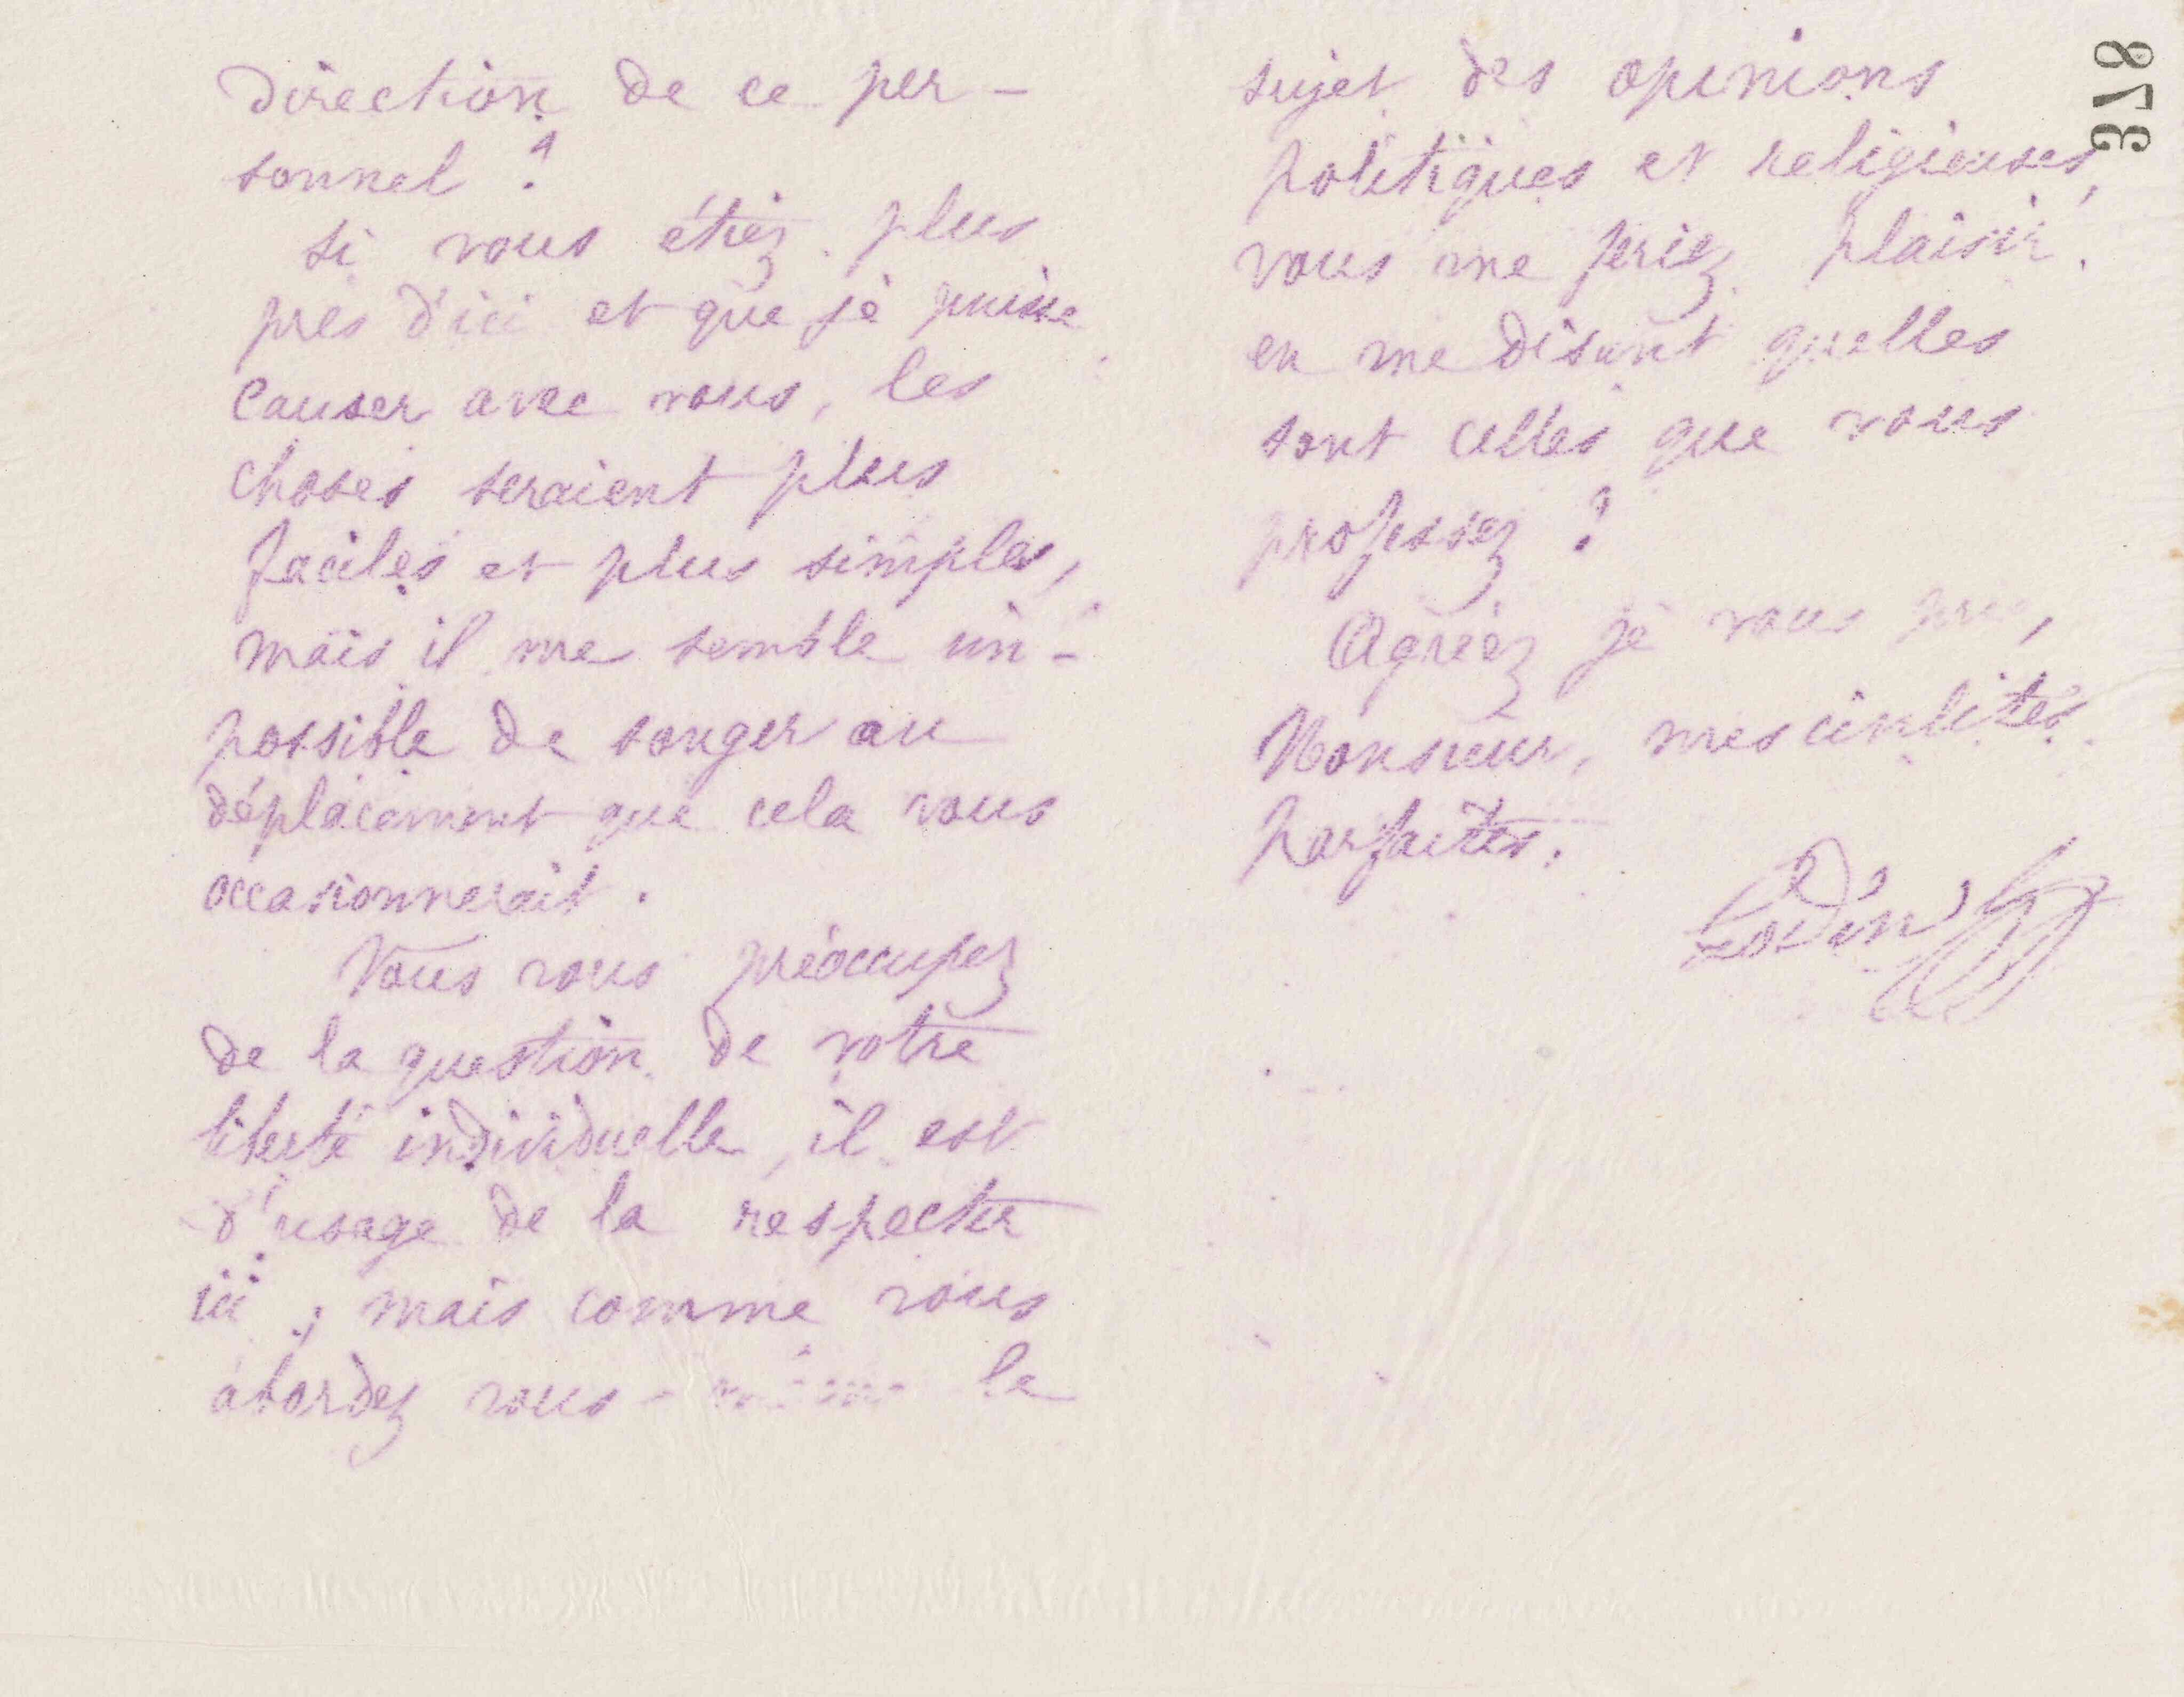 direction de ce per-
sonnel ?
si vous étiez plus
près d'ici et que je puisse
causer avec vous, les
choses seraient plus
faciles et plus simples,
mais il me semble im-
possible de songer au
déplacement que cela vous
occasionnerait.
Vous vous préoccupez
de la question de votre
liberté individuelle, il est
d'usage de la respecter
ici ; mais comme vous
abordez vous-même le
sujet des opinions
politiques et religieuses,
vous me feriez plaisir
en me disant quelles
sont celles que vous
professez ?
Agréez je vous prie,
Monsieur, mes civilités
parfaites.
Godin
378